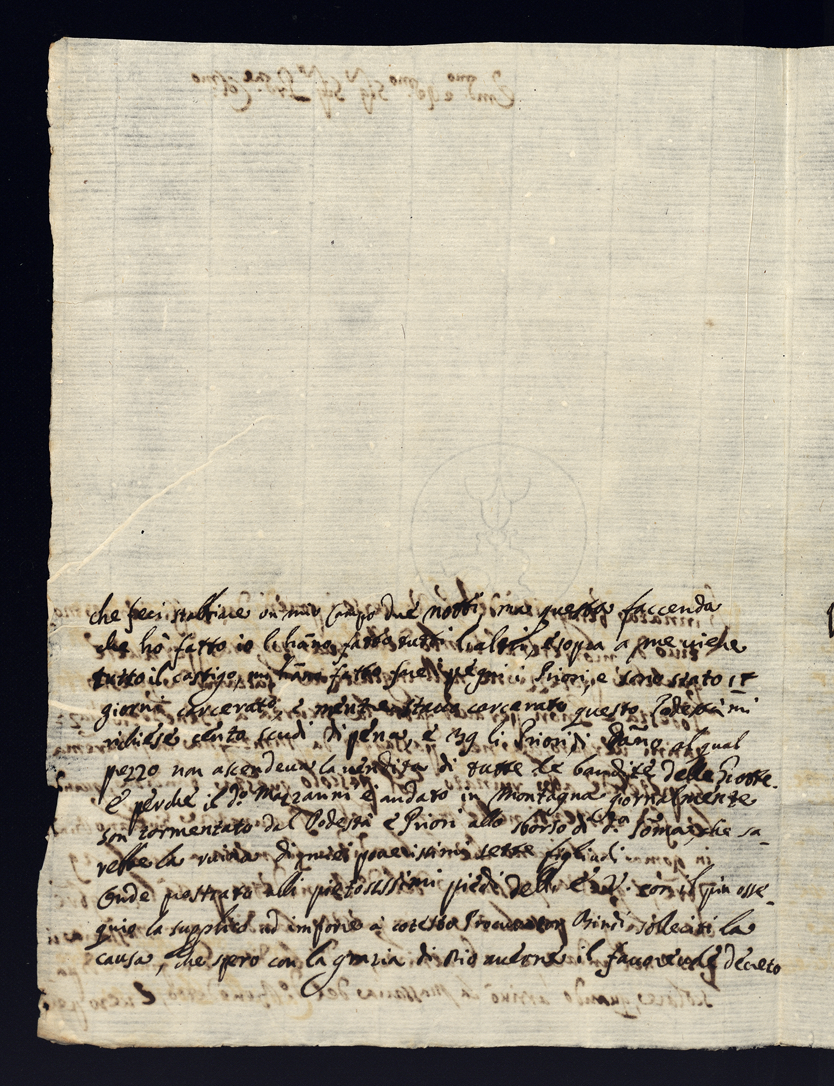 che feci stabbiare un mio Campo due notti, ma questa faccenda
che hò fatto io l'hãno fatta tutti li altri, e sopra a me viene
tutto il castigo, mi hãno fatto fare i Priori, e sono stato 17
giorni carcerato, e mentre stavo carcerato questo Podestà mi
richiese cento scudi di pena, e 39 li Priori di dãno al qual
pezzo non ascendeva la vendita di tutte le bandite delle Grotte.
E perche il dº Mazzanni è andato in Montagna giornalmente
son tormentato dal Podestà e Priori allo sborso di dª Somma, che sa-
rebbe la ruina di miei poverissimi sette figlioli
Onde prostrato alli pietosissimi piedi dell' E. V. con il più osse-
quio la supplico ad imporre à cotesto Procurator Bindi solleciti la
causa, che spero con la grazia di Dio averne il favorevole decreto